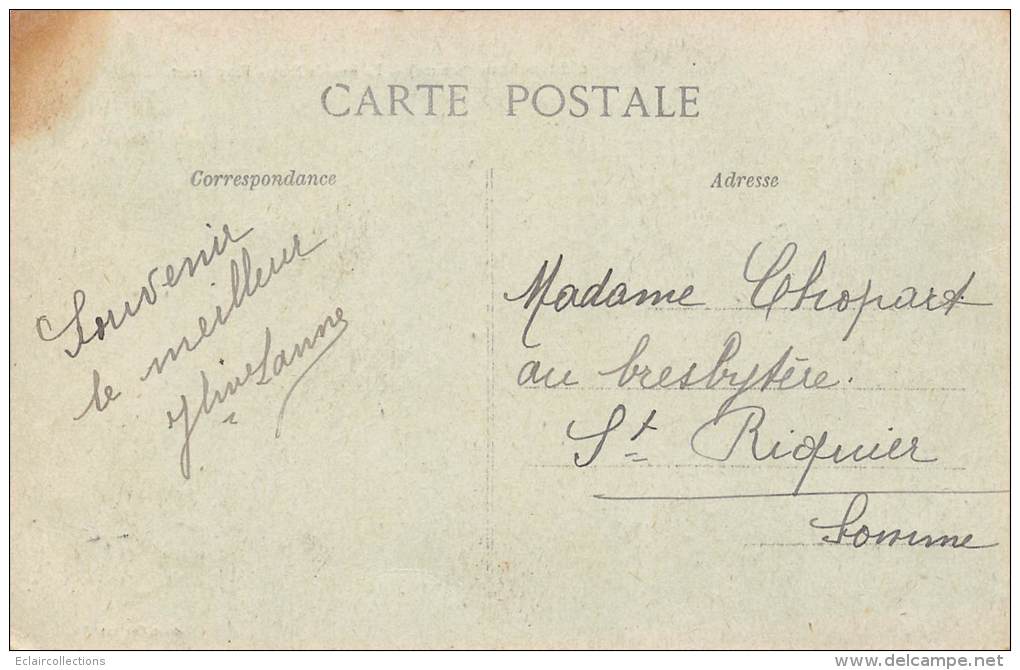 CARTE POSTALE
Correspondance
Souvenir
le meilleur
Adresse
Madame Chopart
au presbytère.
St Riquier
Somme
Eclaircollections
www.delcampe.net